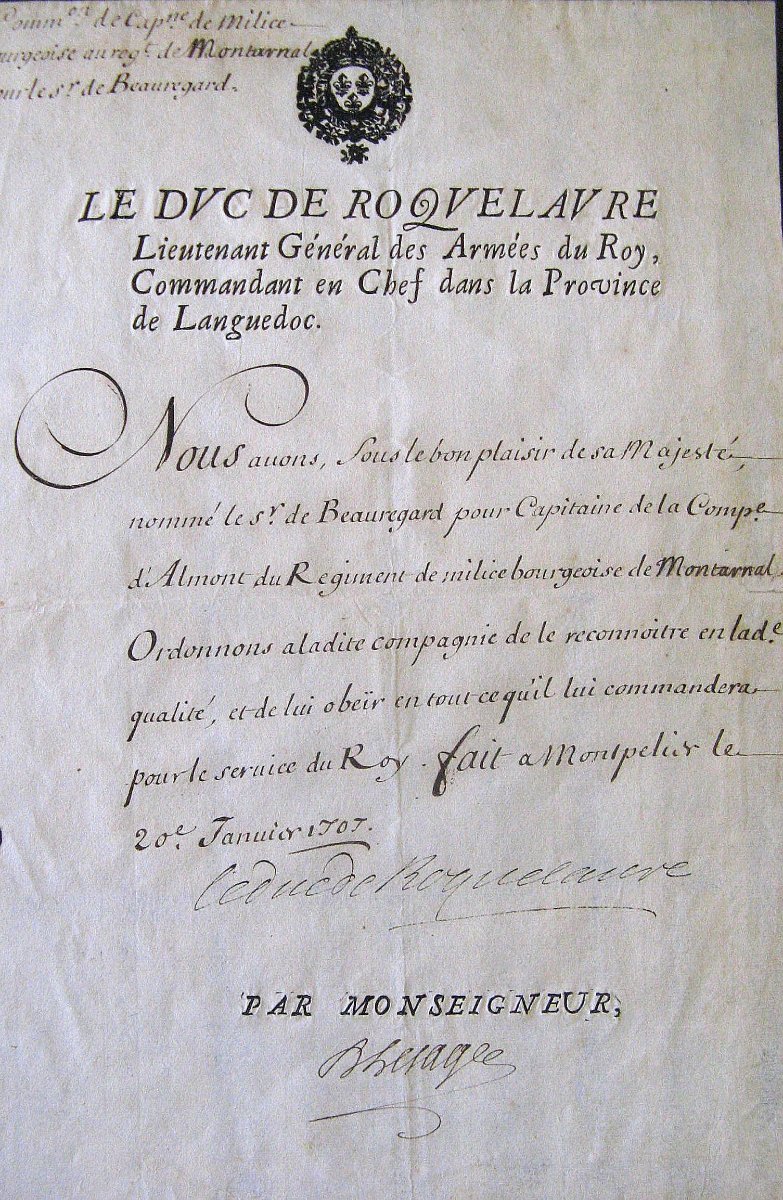 de Cap.ne de milice
bourgeoise au reg.t de Montarnal
pour le s.r de Beauregard.
LE DVC DE ROQVELAVRE
Lieutenant Général des Armées du Roy,
Commandant en Chef dans la Province
de Languedoc.
Nous avons, sous le bon plaisir de sa Majesté,
nommé le s.r de Beauregard pour Capitaine de la Comp.e
d'Almont du Regiment de milice bourgeoise de Montarnal.
Ordonnons a ladite compagnie de le reconnoitre en lad.e
qualité, et de lui obeïr en tout ce qu'il lui commandera
pour le service du Roy. fait a Montpelier le
20.e Januier 1707.
le duc de Roquelaure
PAR MONSEIGNEUR,